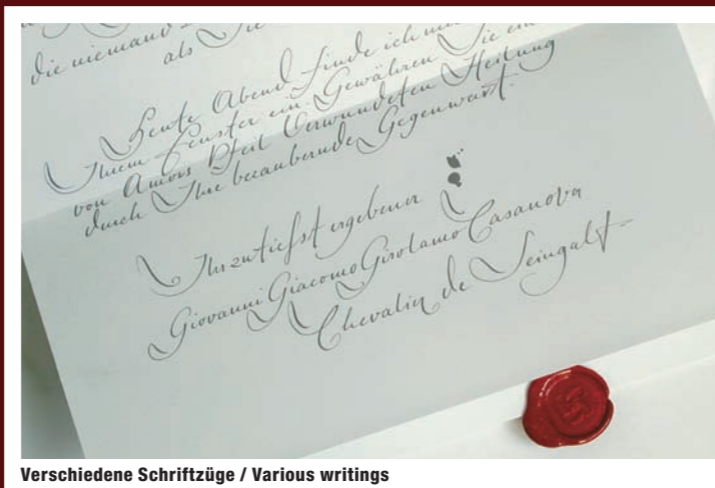 die niemand
als Sie
Heute Abend finde ich
Ihrem Fenster ein. Gewähren Sie
von Amors Pfeil Verwundeten Heilung
durch Ihre bezaubernde Gegenwart.
Ihr zutiefst ergebener
Giovanni Giacomo Girolamo Casanova
Chevalier de Seingalt
Verschiedene Schriftzüge / Various writings